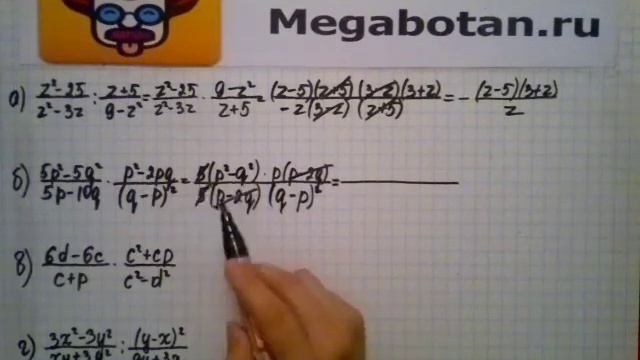 Megabotan.ru
а) \frac{z²-25}{z²-3z} : \frac{z+5}{9-z²} = \frac{z²-25}{z²-3z} · \frac{9-z²}{z+5} = \frac{(z-5)(z+5)(3-z)(3+z)}{-z(3-z)(z+5)} = -\frac{(z-5)(3+z)}{z}
б) \frac{5p²-5q²}{5p-10q} · \frac{p²-2pq}{(q-p)²} = \frac{5(p²-q²)·p(p-2q)}{5(p-2q)(q-p)²} =
в) \frac{6d-6c}{c+p} · \frac{c²+cp}{c²-d²}
г) \frac{3x²-3y²}{} : \frac{(y-x)²}{}